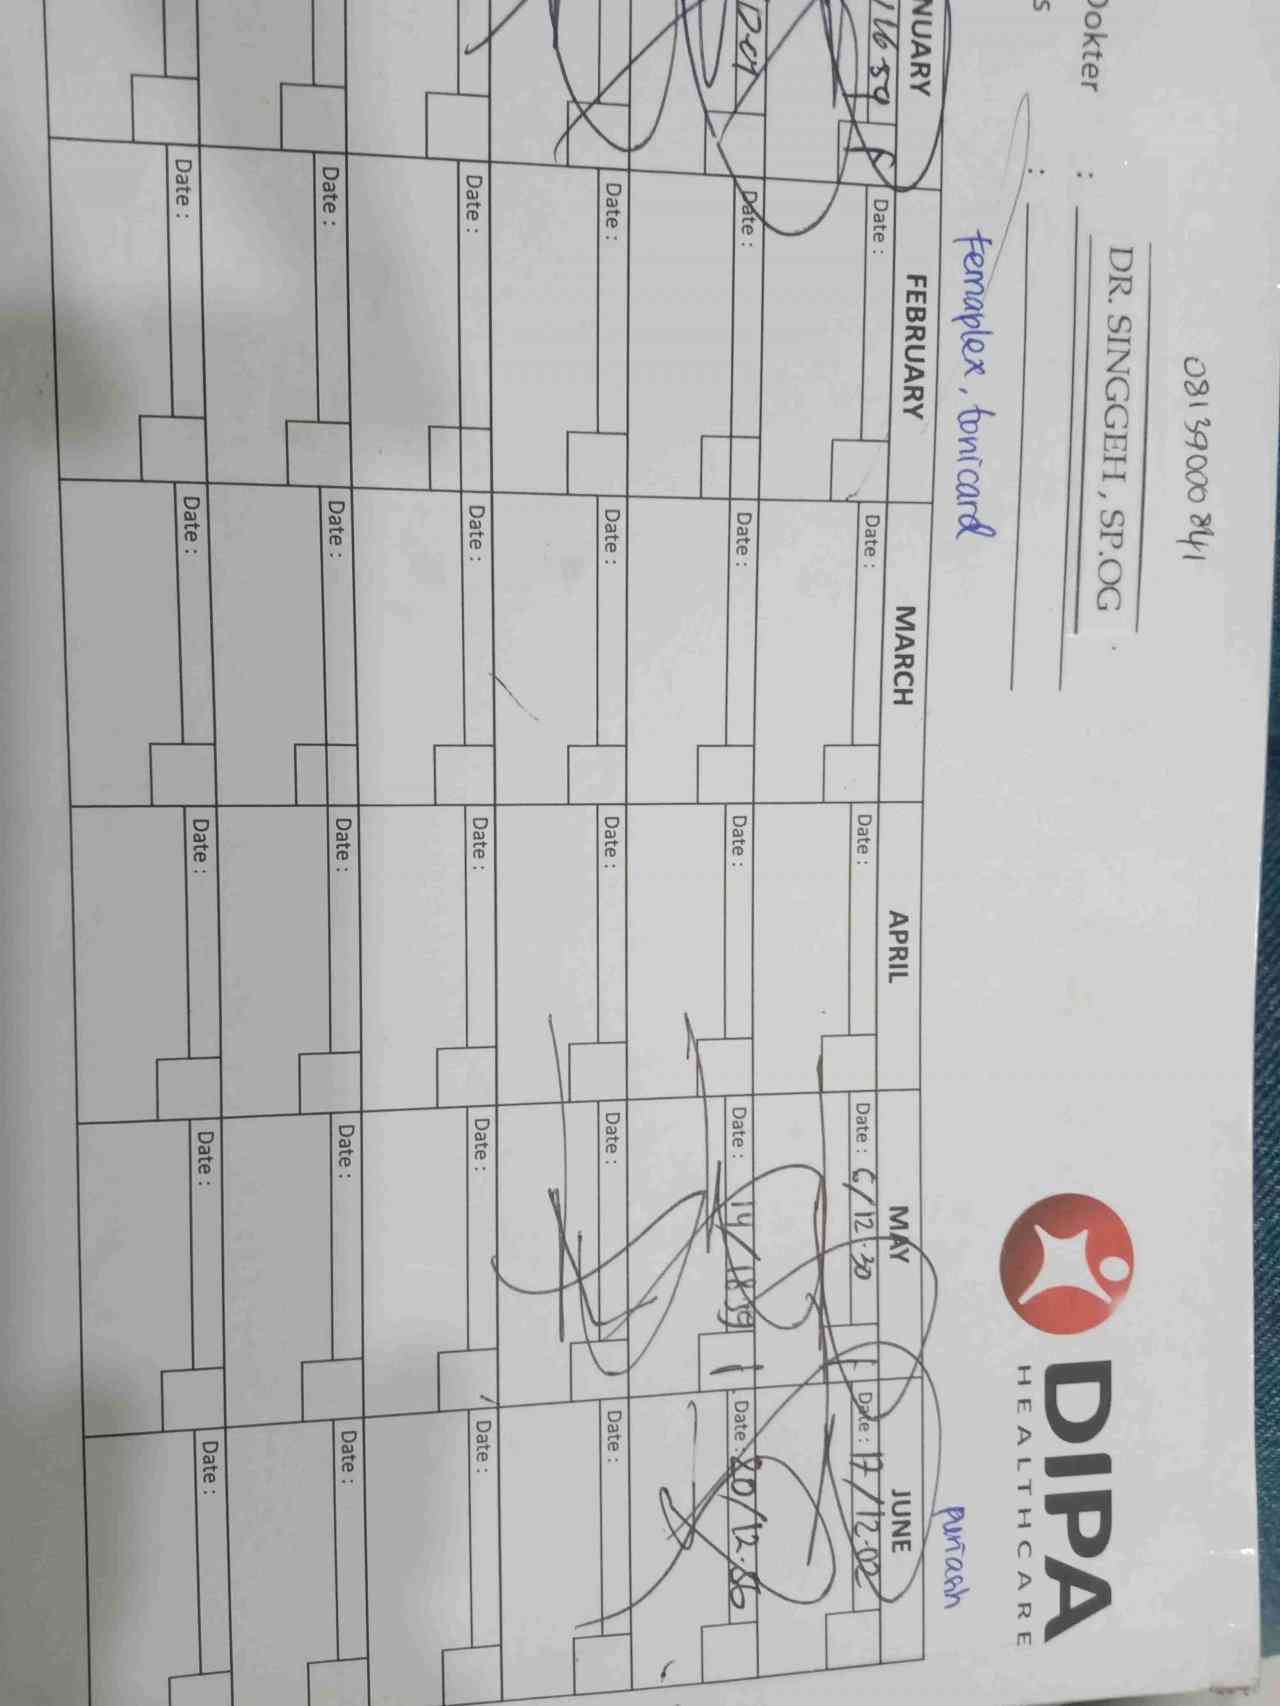 081390008941
DIPA
HEALTHCARE
Dokter : DR. SINGGEH, SP.OG
s :
Femaplex, tonicard
NUARY FEBRUARY MARCH APRIL MAY JUNE
1659 Date : Date : Date : Date : 6/12.30 Date : 17/12.02
Date : Date : Date : Date : 14/1839 Date : 20/12.56
Date : Date : Date : Date : Date :
Date : Date : Date : Date : Date :
Date : Date : Date : Date : Date :
Date : Date : Date : Date : Date :